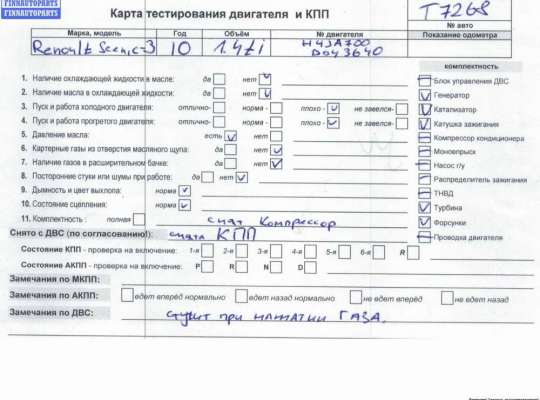 FINNAUTOPARTS
FINNAUTOPARTS
Карта тестирования двигателя и КПП
T7268
№ авто
Марка, модель Год Объём № двигателя Показание одометра
Renault Scenic-3 10 1.4ti H4JA700
D043640
комплектность
1. Наличие охлаждающей жидкости в масле: да нет
2. Наличие масла в охлаждающей жидкости: да нет
3. Пуск и работа холодного двигателя: отлично- норма - плохо - не завелся-
4. Пуск и работа прогретого двигателя: отлично- норма - плохо - не завелся-
5. Давление масла: есть нет
6. Картерные газы из отверстия масляного щупа: да нет
7. Наличие газов в расширительном бачке: да нет
8. Посторонние стуки или шумы при работе: да нет
9. Дымность и цвет выхлопа: норма
10. Состояние сцепления: норма
11. Комплектность : полная снят Компрессор
Блок управления ДВС
Генератор
Катализатор
Катушка зажигания
Компрессор кондиционера
Моновпрыск
Насос г/у
Распределитель зажигания
ТНВД
Турбина
Форсунки
Проводка двигателя
Снято с ДВС (по согласованию!): снята КПП
Состояние КПП - проверка на включение: 1-я 2-я 3-я 4-я 5-я 6-я R
Состояние АКПП - проверка на включение: P R N D
Замечания по МКПП:
Замечания по АКПП: едет вперёд нормально едет назад нормально не едет вперёд не едет назад
Замечания по ДВС: стучит при нажатии ГАЗА.